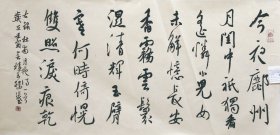 今夜鄜州
月閨中祇獨看
遙憐小兒女
未解憶長安
香霧雲鬟
濕清輝玉臂
寒何時倚幌
雙照淚痕乾
杜甫月夜